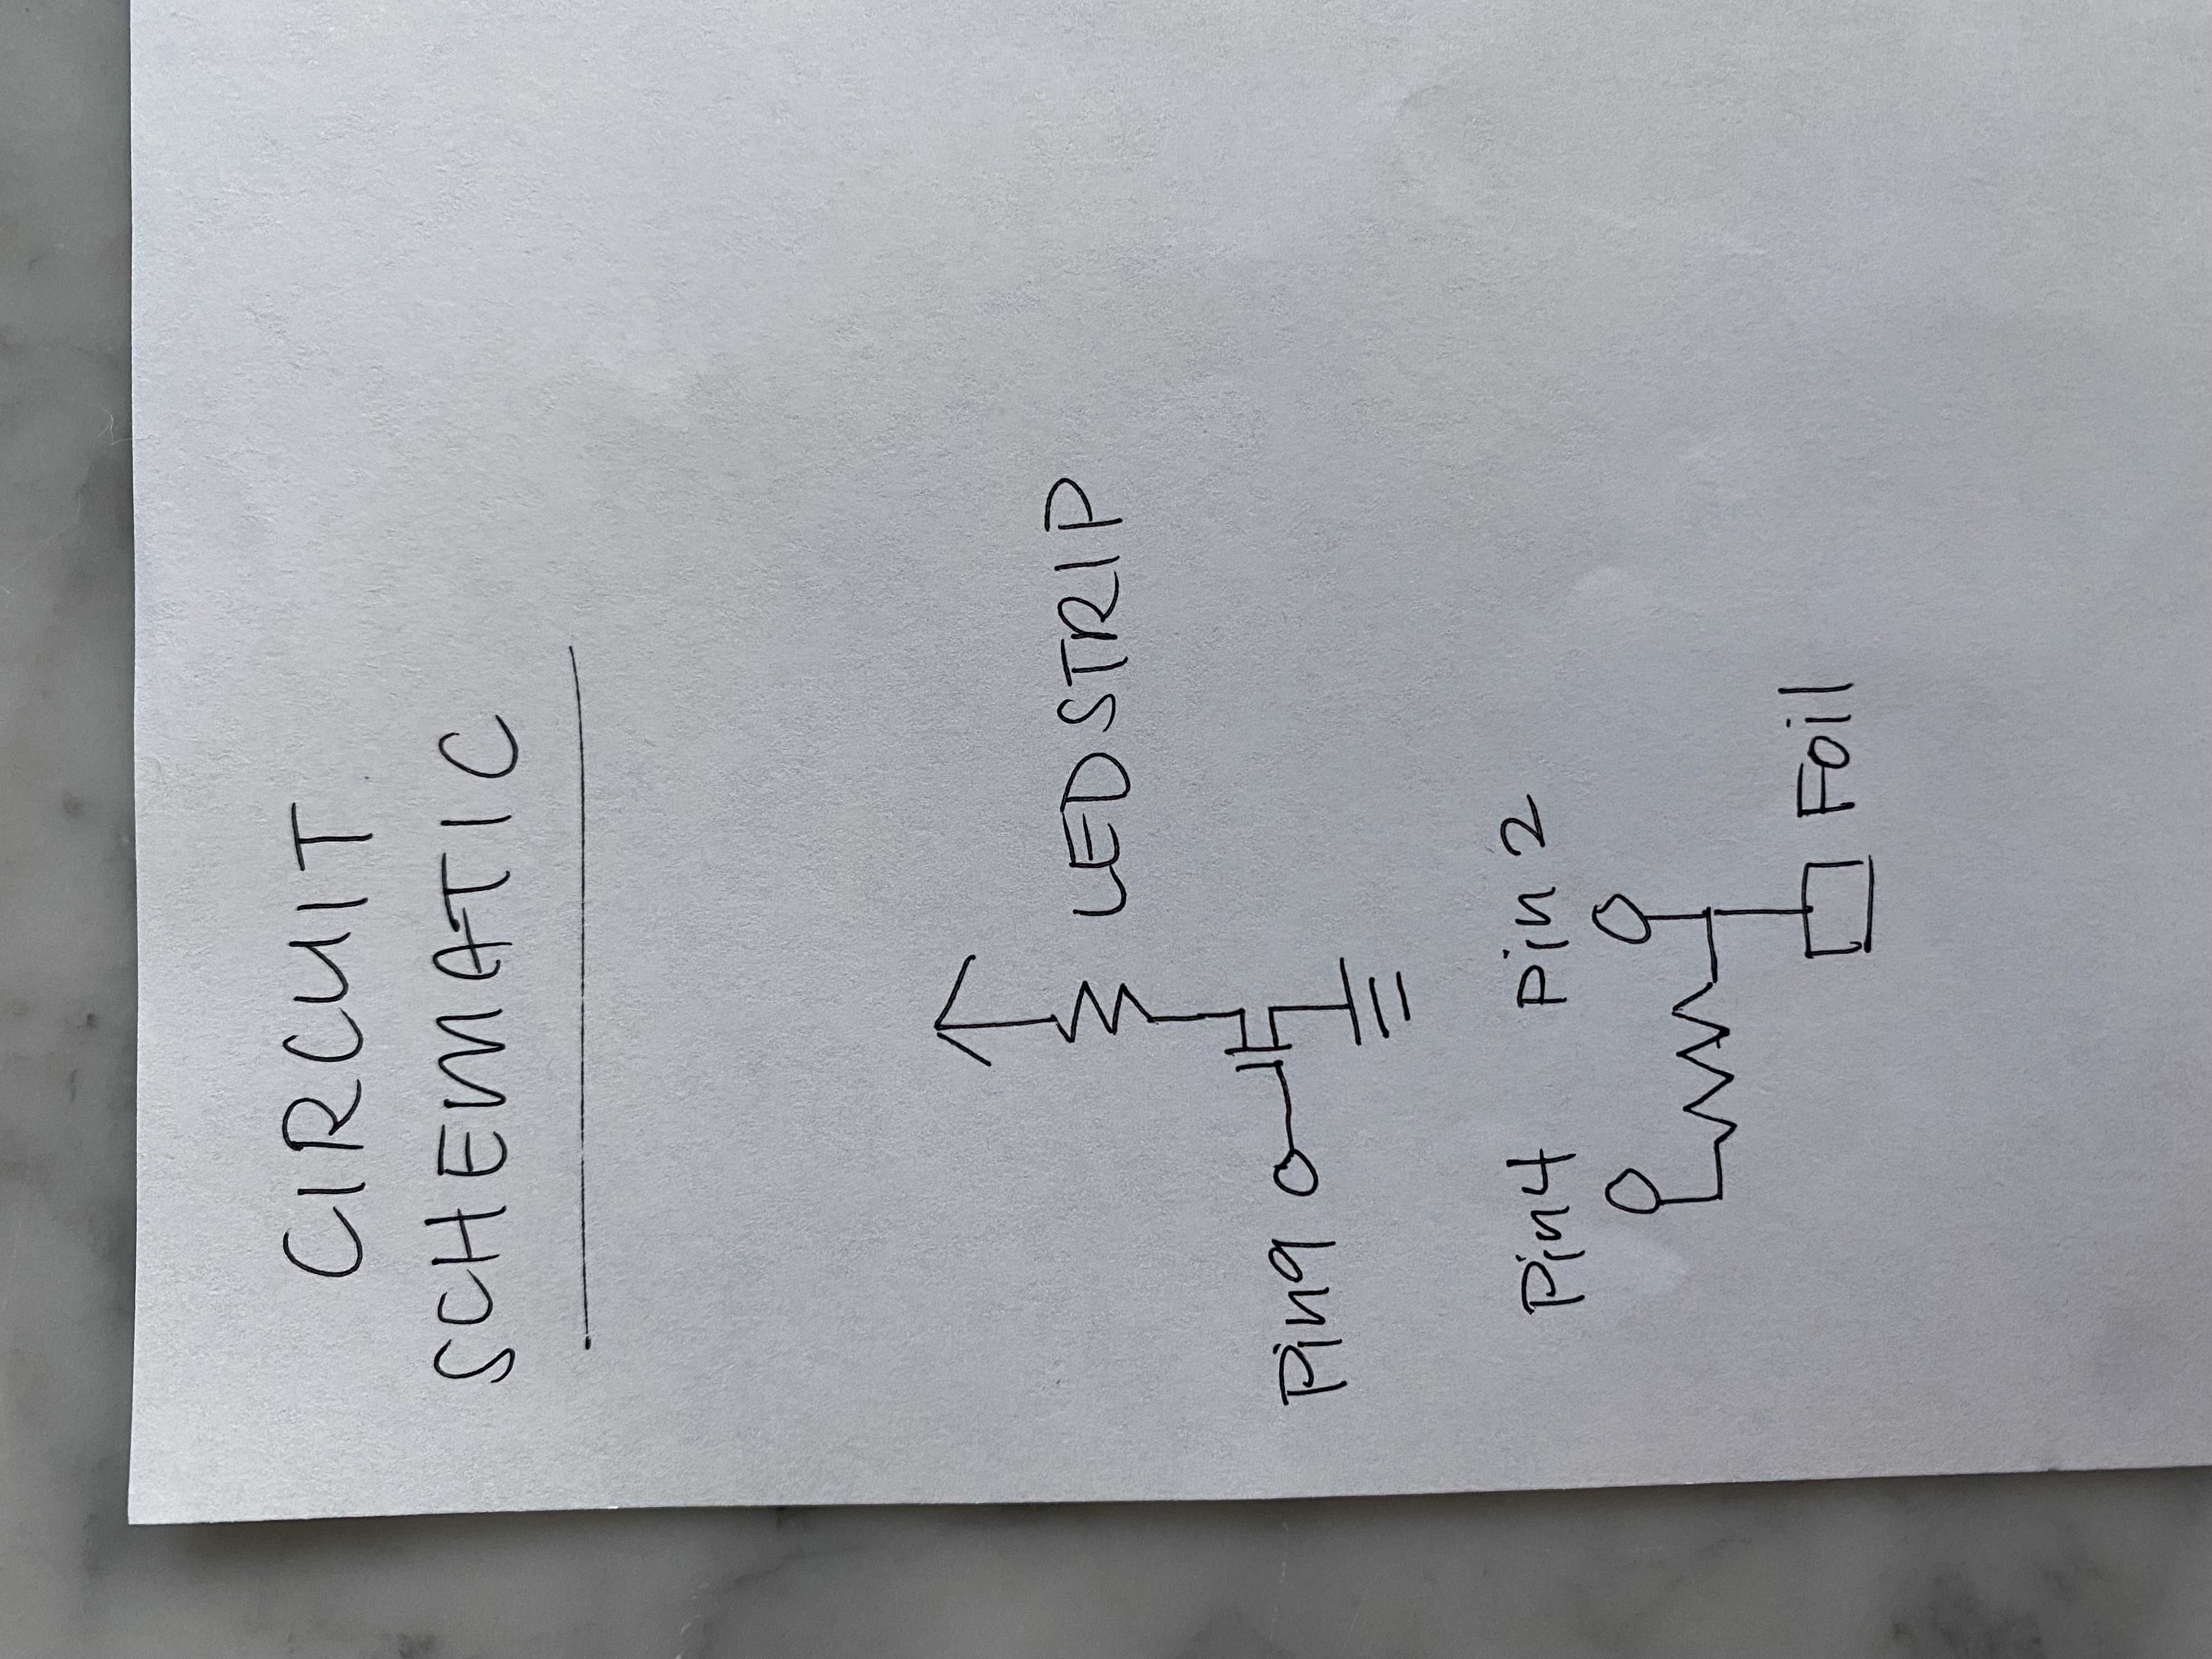 CIRCUIT
SCHEMATIC
LED STRIP
Pin9
Pin4 Pin 2
Foil